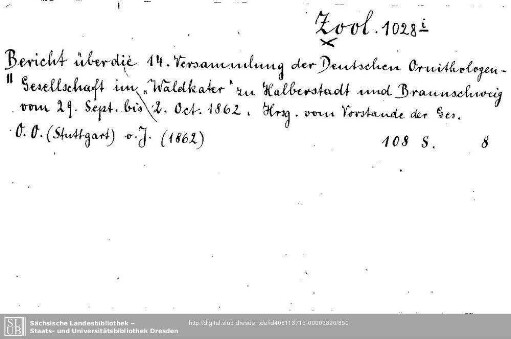 Zool. 1028 i
Bericht über die 14. Versammlung der Deutschen Ornithologen-
Gesellschaft im „Waldkater" zu Halberstadt und Braunschweig
vom 29. Sept. bis 2. Oct. 1862. Hrsg. vom Vorstande der Ges.
O. O. (Stuttgart) o. J. (1862) 108 S. 8
SLUB
Sächsische Landesbibliothek –
Staats- und Universitätsbibliothek Dresden